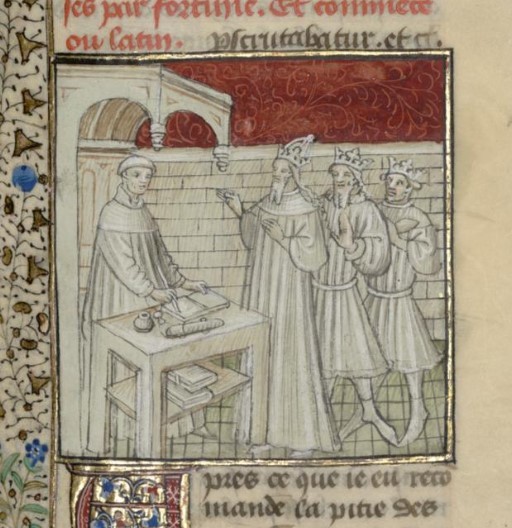 ses par fortune. Et commece
ou latin. pscrutabatur. et c.
pres ce que ie eu reco
mande la pitie des